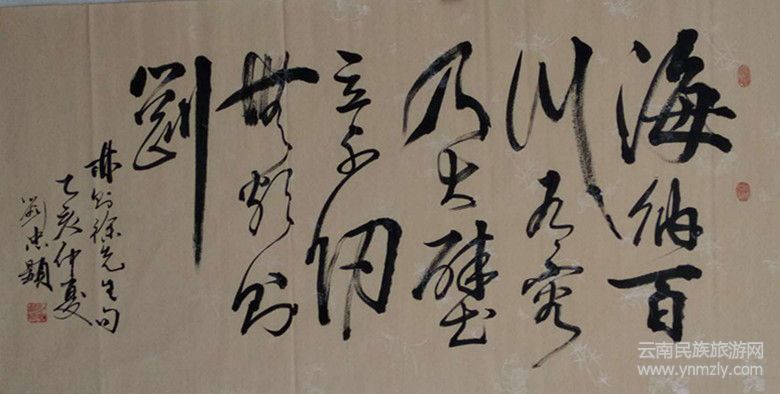 海纳百
川有容
乃大壁
立千仞
無欲则
剛
林则徐先生句
亥仲夏
劉忠
云南民族旅游网
www.ynmzly.com